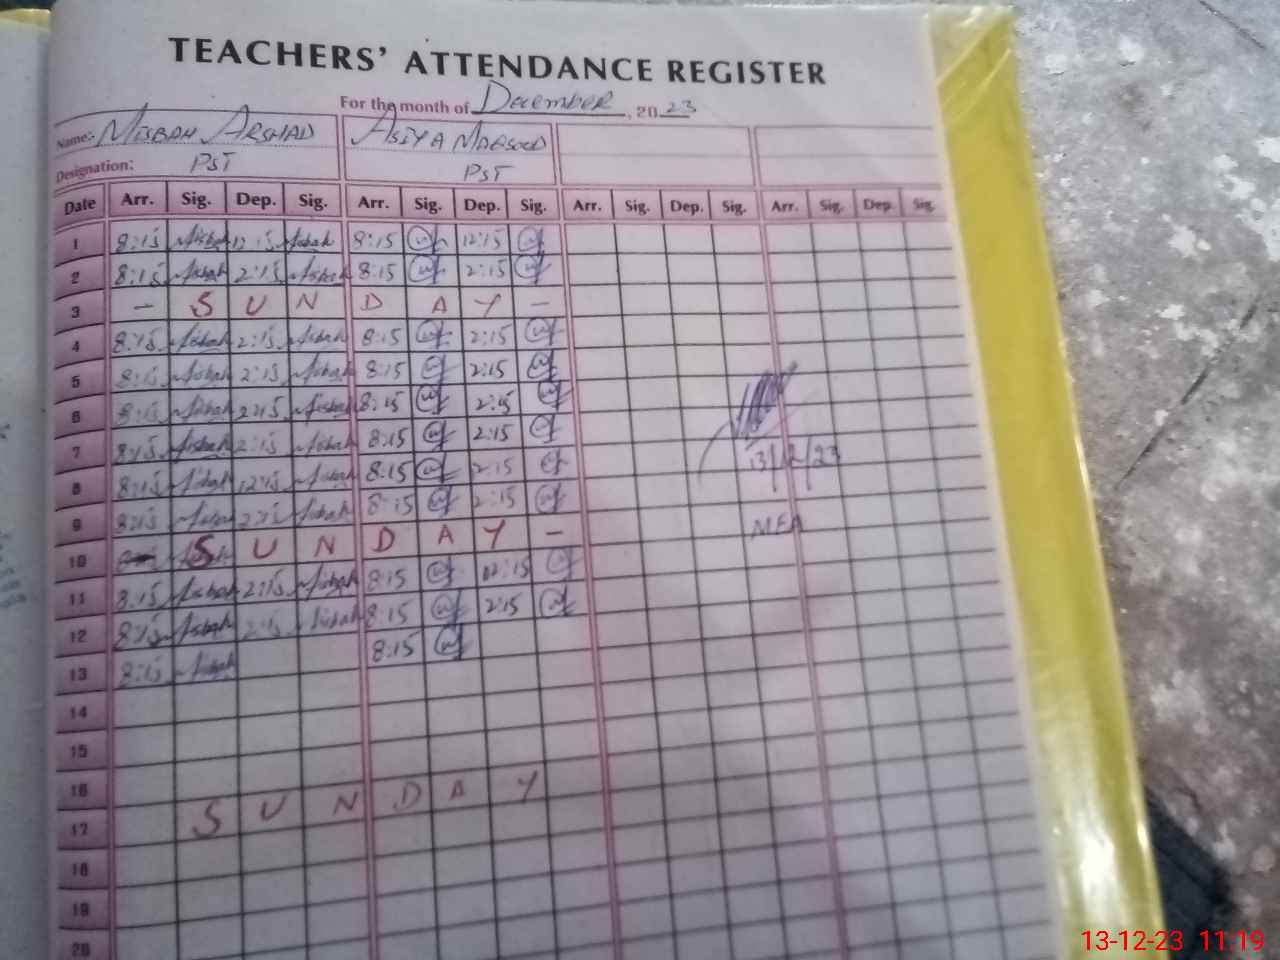 TEACHERS' ATTENDANCE REGISTER
For the month of December, 2023
Name:- MISBAH ARSHAD ASIYA MAQSOOD
Designation: PST PST
Date Arr. Sig. Dep. Sig. Arr. Sig. Dep. Sig. Arr. Sig. Dep. Sig. Arr. Sig. Dep. Sig.
1 8:15 Misbah 12:15 Misbah 8:15 12:15
2 8:15 Misbah 2:15 Misbah 8:15 2:15
3 - S U N D A Y -
4 8:15 Misbah 2:15 Misbah 8:15 2:15
5 8:15 Misbah 2:15 Misbah 8:15 2:15
6 8:15 Misbah 2:15 Misbah 8:15 2:15
7 8:15 Misbah 2:15 Misbah 8:15 2:15
8 8:15 Misbah 12:15 Misbah 8:15 2:15
9 8:15 Misbah 2:15 Misbah 8:15 2:15
10 S U N D A Y -
11 8:15 Misbah 2:15 Misbah 8:15 12:15
12 8:15 Misbah 2:15 Misbah 8:15 2:15
13 8:15 Misbah 8:15
14
15
16
17 S U N D A Y
18
19
20
13/12/23
MEA
13-12-23 11:19